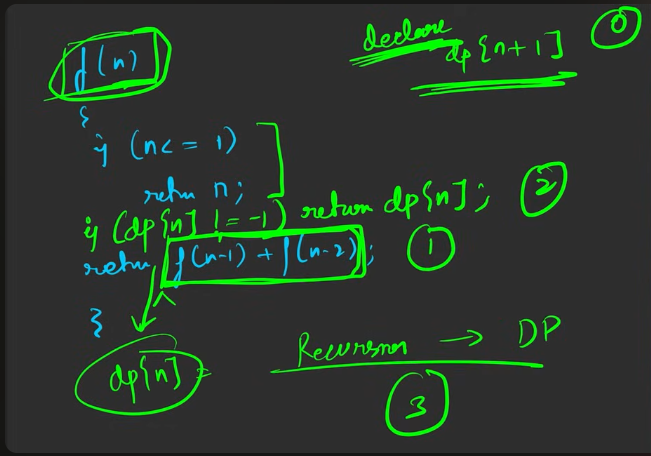 declare
dp[n+1] 0
f(n)
{
if (n<=1)
return n;
if (dp[n] != -1) return dp[n]; 2
return f(n-1) + f(n-2); 1
}
dp[n] =
Recursion → DP
3